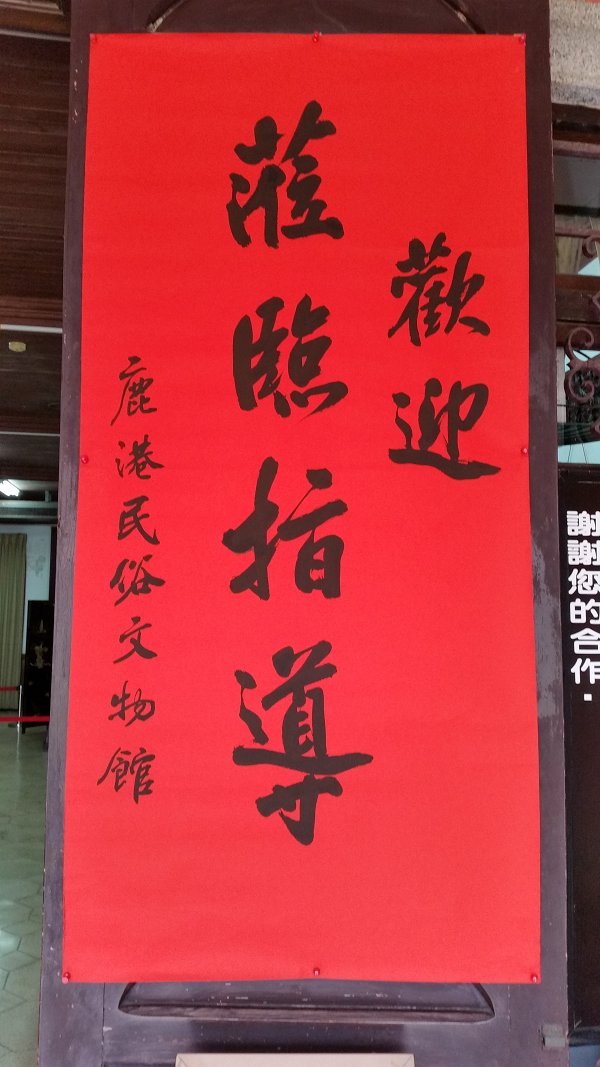 歡迎
蒞臨指導
鹿港民俗文物館
謝謝您的合作.